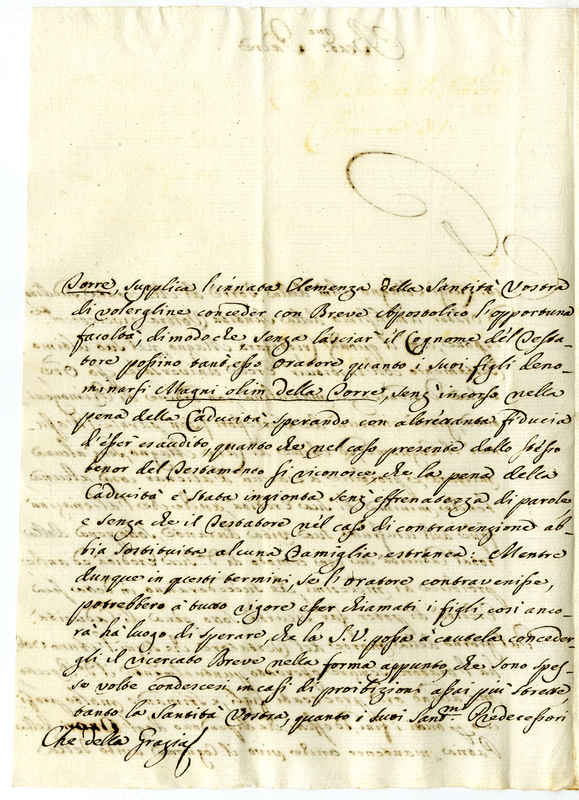 Torre, supplica l'innata Clemenza della Santità Vostra
di volergline conceder con Breve Apostolico l'opportuna
facoltà, di modo che senza lasciar il Cognome del Testa-
tore possino tant'esso Oratore quanto i suoi figli deno-
minarsi Magni olim della Torre, senz'incorso nella
pena della Caducità, sperando con altretanta fiducia
d'esser esaudito, quanto che nel caso presente dallo stesso
tenor del Testamento si riconosce, che la pena della
Caducità è stata ingionta senz'effrenatezza di parole
e senza che il Testatore nel caso di contravenzione ab-
bia sostituita alcuna Famiglia estranea: Mentre
dunque in questi termini, se l'Oratore contravenisse,
potrebbero à tutto rigore esser chiamati i figli, così anco-
ra hà luogo di sperare, che la S. V. possa à cautela conceder-
gli il ricercato Breve nella forma appunto, che sono spes-
se volte condescesi in casi di proibizioni assai più strette
tanto la Santità Vostra, quanto i suoi Sant.m Predecessori
Che della Grazia